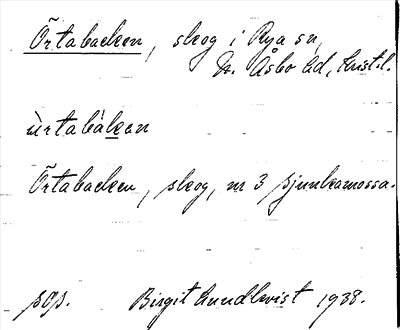 Örtabacken, skog i Rya sn,
N. Åsbo hd, Krist.l.
ùrtabákan
Örtabacken, skog, m 3 Sjunkamossa.
pgr.   Birgit Lundkvist 1938.